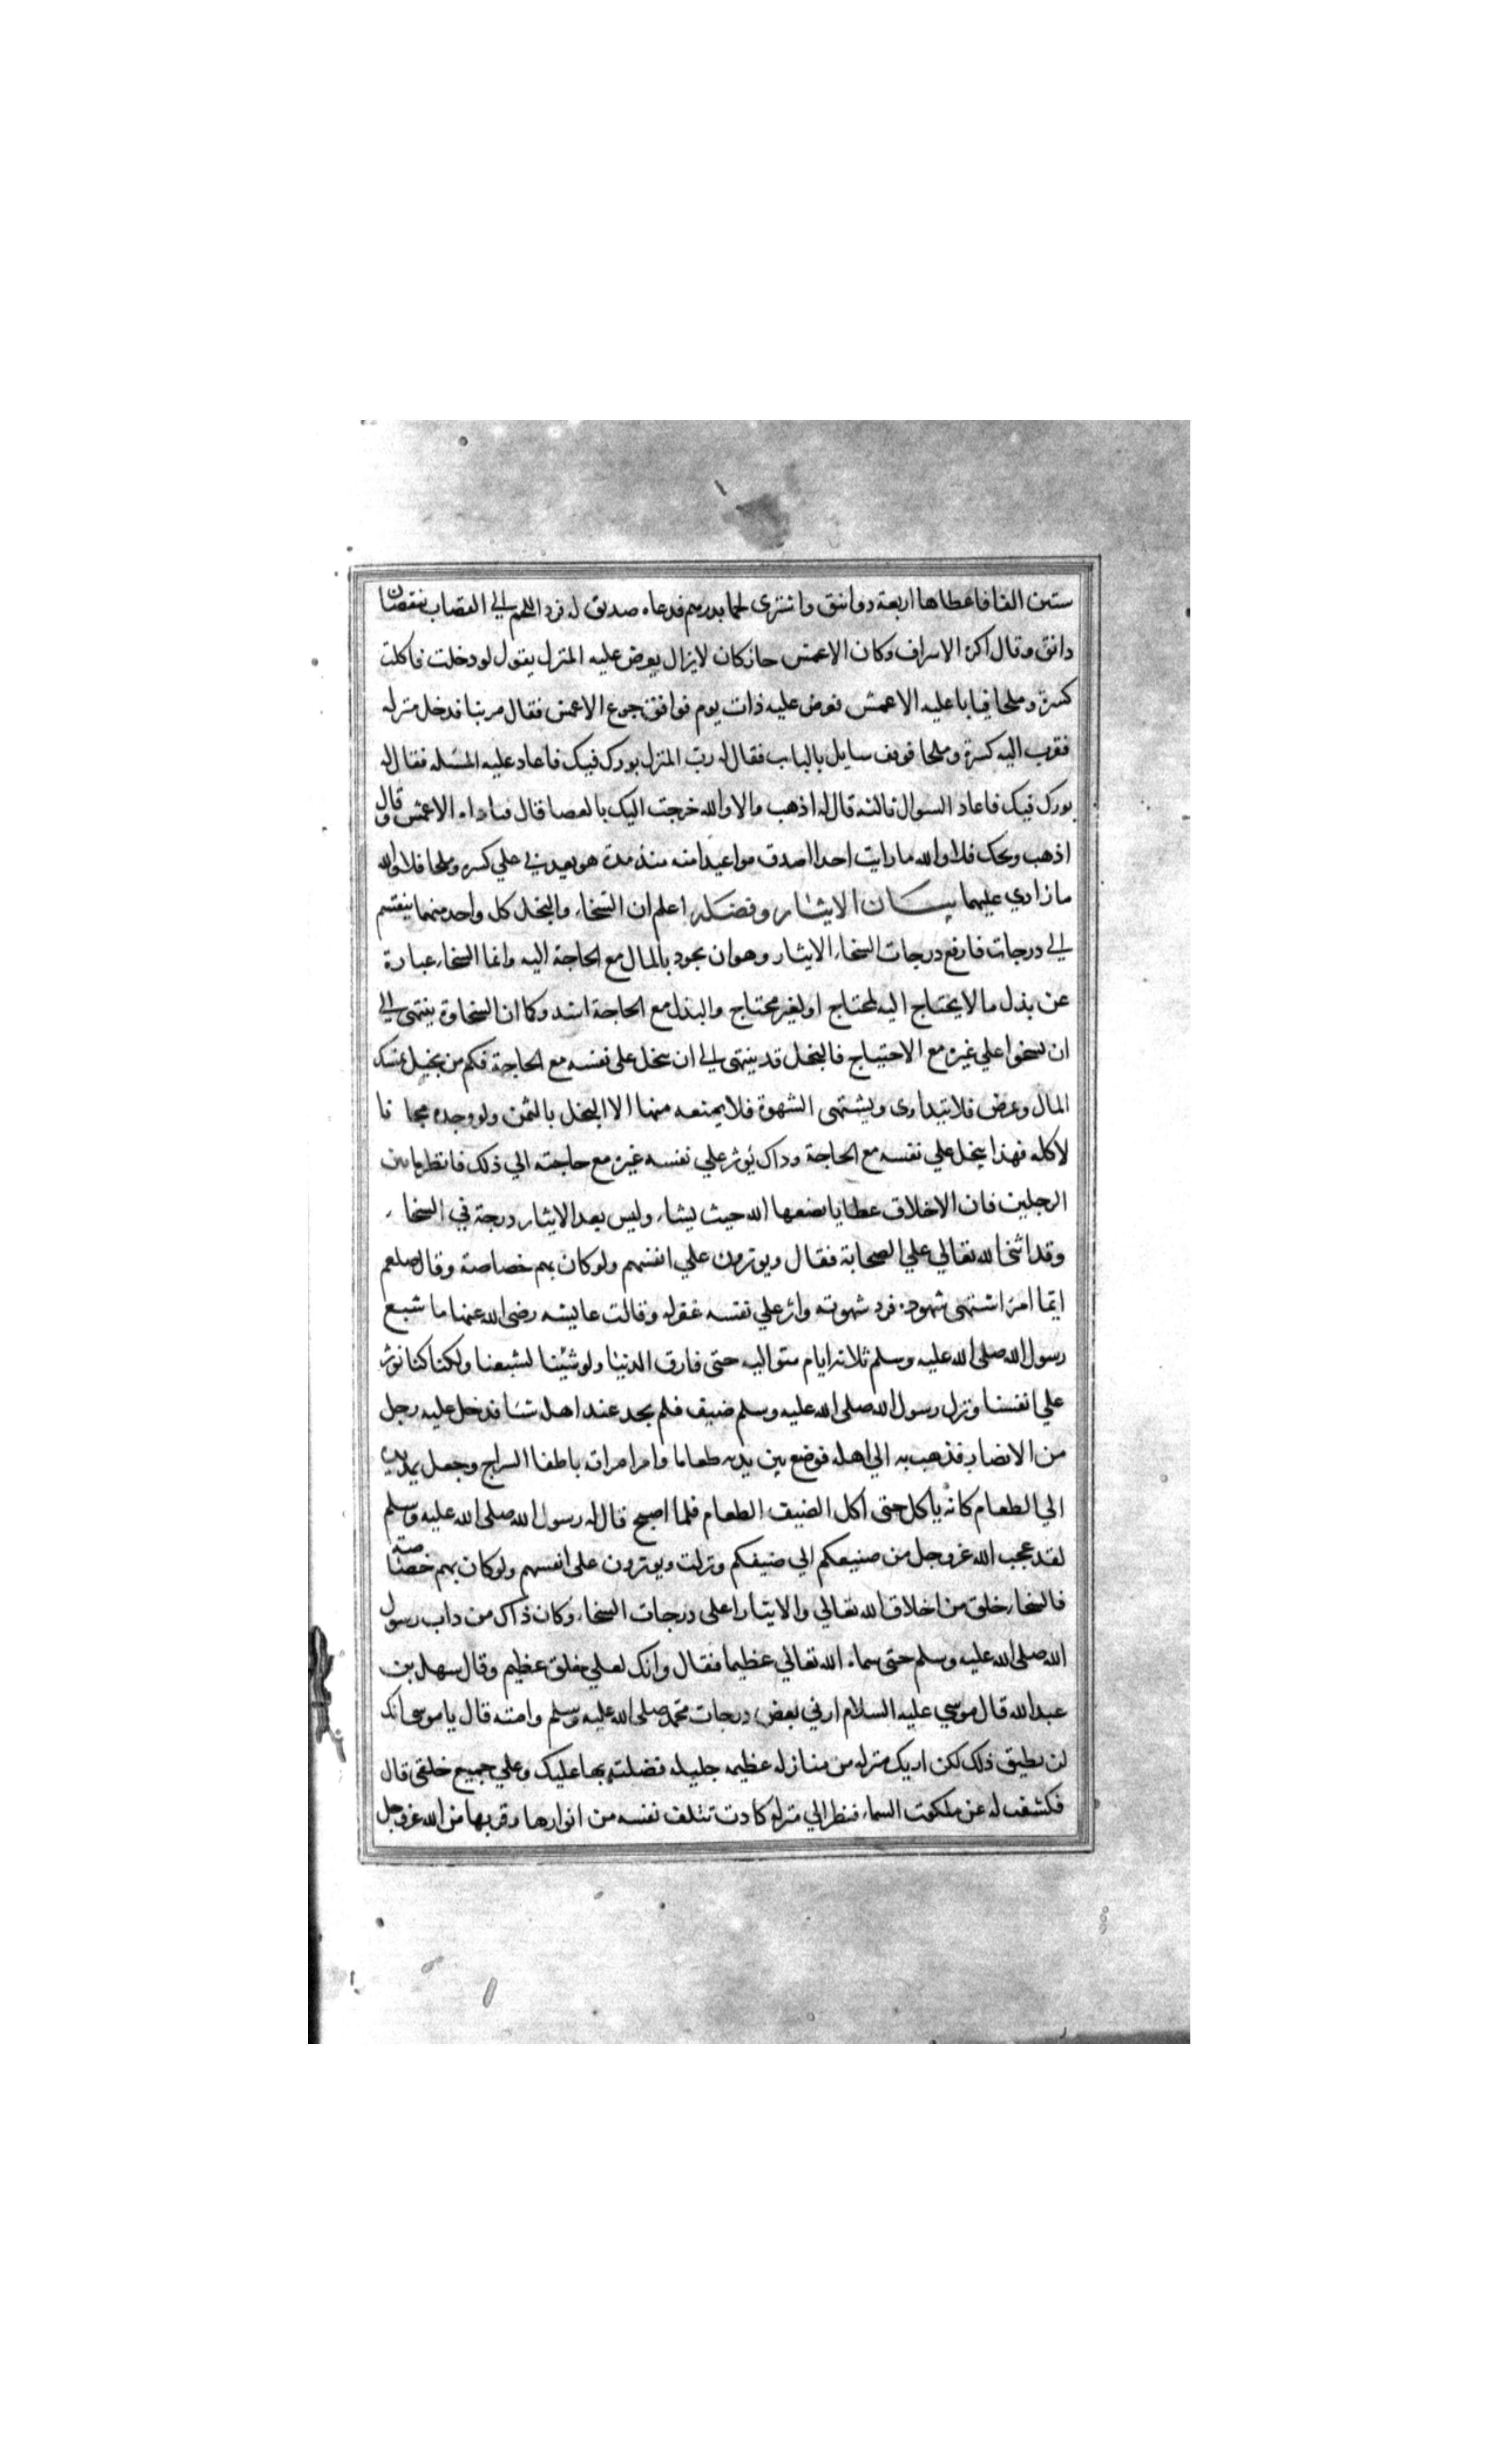 ستين الفا فاعطاها اربعة دوانيق واشترى لحما بدرهم فدعاه صديق له فرد اللحم الي القصاب بنقصان
دانق وقال اكره الاسراف وكان الاعمش جار كان لايزال يعرض عليه المنزل يقول لو دخلت فاكلت
كسرة وملحا فيابا عليه الاعمش فعرض عليه ذات يوم فوافق جوع الاعمش فقال مر بنا فدخل منزله
فقرب اليه كسرة وملحا فوقف سايل بالباب فقال له رب المنزل بورك فيك فاعاد عليه المسله فقال له
بورك فيك فاعاد السوال ثالثه قال له اذهب والا والله خرجت اليك بالعصا قال فناداه الاعمش وقال
اذهب ويحك فلا والله ما رايت احدا اصدق مواعيد امنه منذ مدة هو يعدني علي كسره وملحا فلا والله
ما زادني عليهما بيـــان الايثار وفضله اعلم ان السخاء والبخل كل واحد منهما ينقسم
الي درجات فارفع درجات السخاء الايثار وهو ان يجود بالمال مع الحاجة اليه وانما السخاء عبارة
عن بذل ما لا يحتاج اليه لمحتاج او لغير محتاج والبذل مع الحاجة اشد وكما ان السخاوة ينتهى الي
ان يسخوا علي غيره مع الاحتياج فالبخل قد ينتهى الي ان يبخل على نفسه مع الحاجة فكم من بخيل يمسك
المال ومرض فلا يتداوى ويشتهى الشهوة فلا يمنعه منها الا البخل بالثمن ولو وجده مجانا
لاكله فهذا يبخل علي نفسه مع الحاجة وذاك يوثر علي نفسه غيره مع حاجته الي ذلك فانظر ما بين
الرجلين فان الاخلاق عطايا يضعها الله حيث يشاء وليس بعد الايثار درجة في السخاء
وقد اثنى الله تعالي علي الصحابة فقال ويوثرون علي انفسهم ولو كان بهم خصاصة وقال صلعم
ايما امرا اشتهى شهوة فرد شهوته واثر علي نفسه غفر له وقالت عايشه رضى الله عنها ما شبع
رسول الله صلى الله عليه وسلم ثلاثه ايام متواليه حتى فارق الدنيا ولو شئنا لشبعنا ولكنا كنا نوثر
علي انفسنا ونزل رسول الله صلى الله عليه وسلم ضيف فلم يجد عند اهله شيا فدخل عليه رجل
من الانصار فذهب به الي اهله فوضع بين يديه طعاما وامر امراته باطفا السراج وجعل يمد يده
الي الطعام كانه ياكل حتى اكل الضيف الطعام فلما اصبح قال له رسول الله صلى الله عليه وسلم
لقد عجب الله عزوجل من صنيعكم الي ضيفكم ونزلت ويوثرون على انفسهم ولو كان بهم خصاصة
فالسخاء خلق من اخلاق الله تعالي والايثار اعلى درجات السخاء وكان ذاك من داب رسول
الله صلى الله عليه وسلم حتى سماه الله تعالي عظيما فقال وانك لعلي خلق عظيم وقال سهل بن
عبد الله قال موسي عليه السلام ارني بعض درجات محمد صلى الله عليه وسلم وامته قال يا موسى انك
لن تطيق ذلك لكن اريك منزله من منازله عظيمه جليله فضلته بها عليك وعلي جميع خلقى قال
فكشف له عن ملكوت السماء فنظر الي منزله كادت تتلف نفسه من انوارها وقربها من الله عزوجل